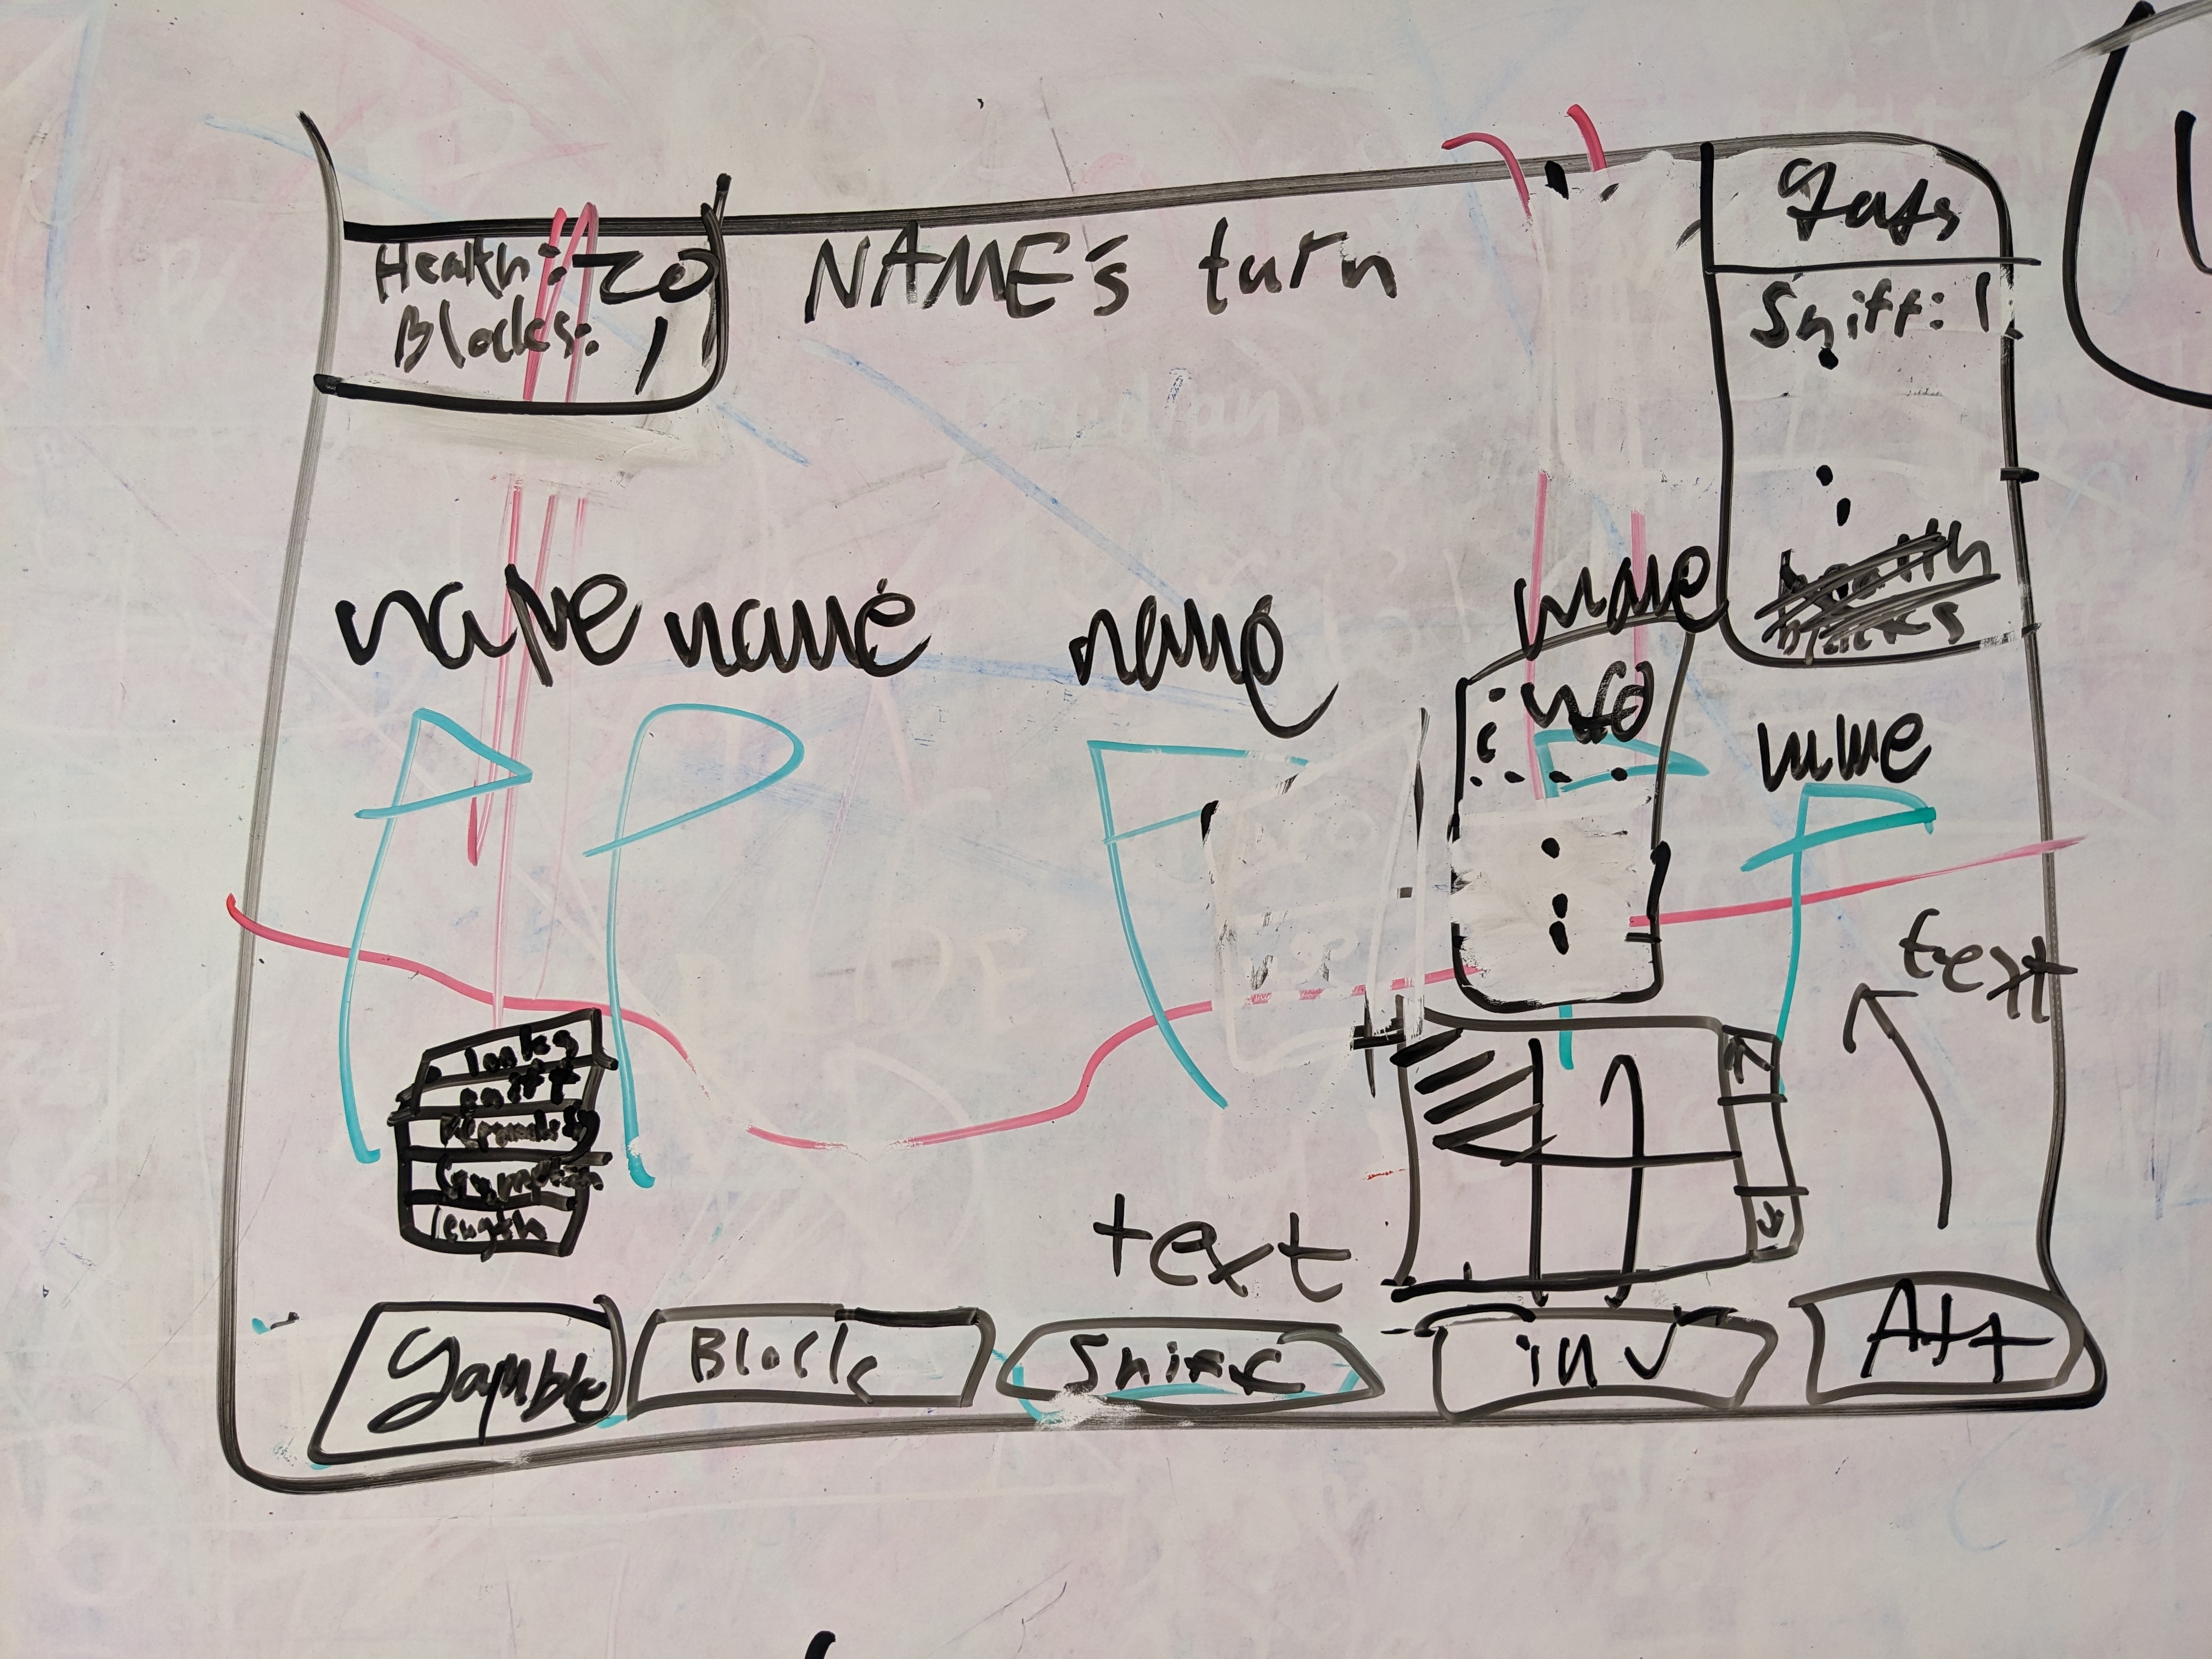 Health: 20
Blocks: 1
NAME's turn
Stats
Sniff: 1
health
blocks
name name name name
info
name
text
looks
sniff
length
text
Gamble Block Sniff inv Att